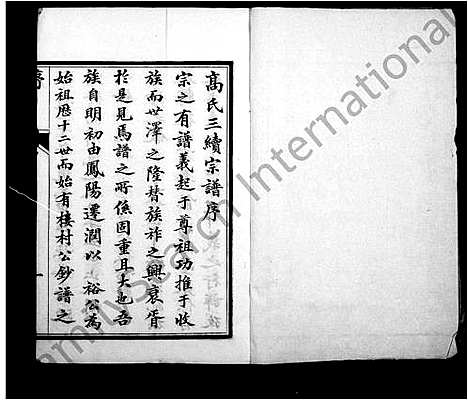 高氏三續宗譜序
宗之有譜義起于尊祖功推于收
族而世澤之隆替族祚之興衰胥
於是見焉譜之所係固重且大也吾
族自明初由鳳陽遷潤以 裕公為
始祖歷十二世而始有樓村公鈔譜之
序
FamilySearch International